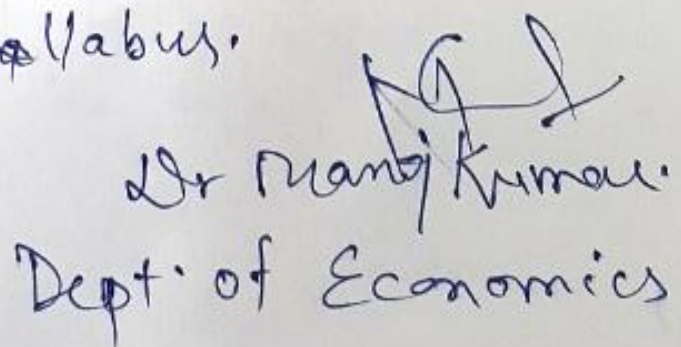 syllabus.
Dr Manoj Kumar.
Dept. of Economics